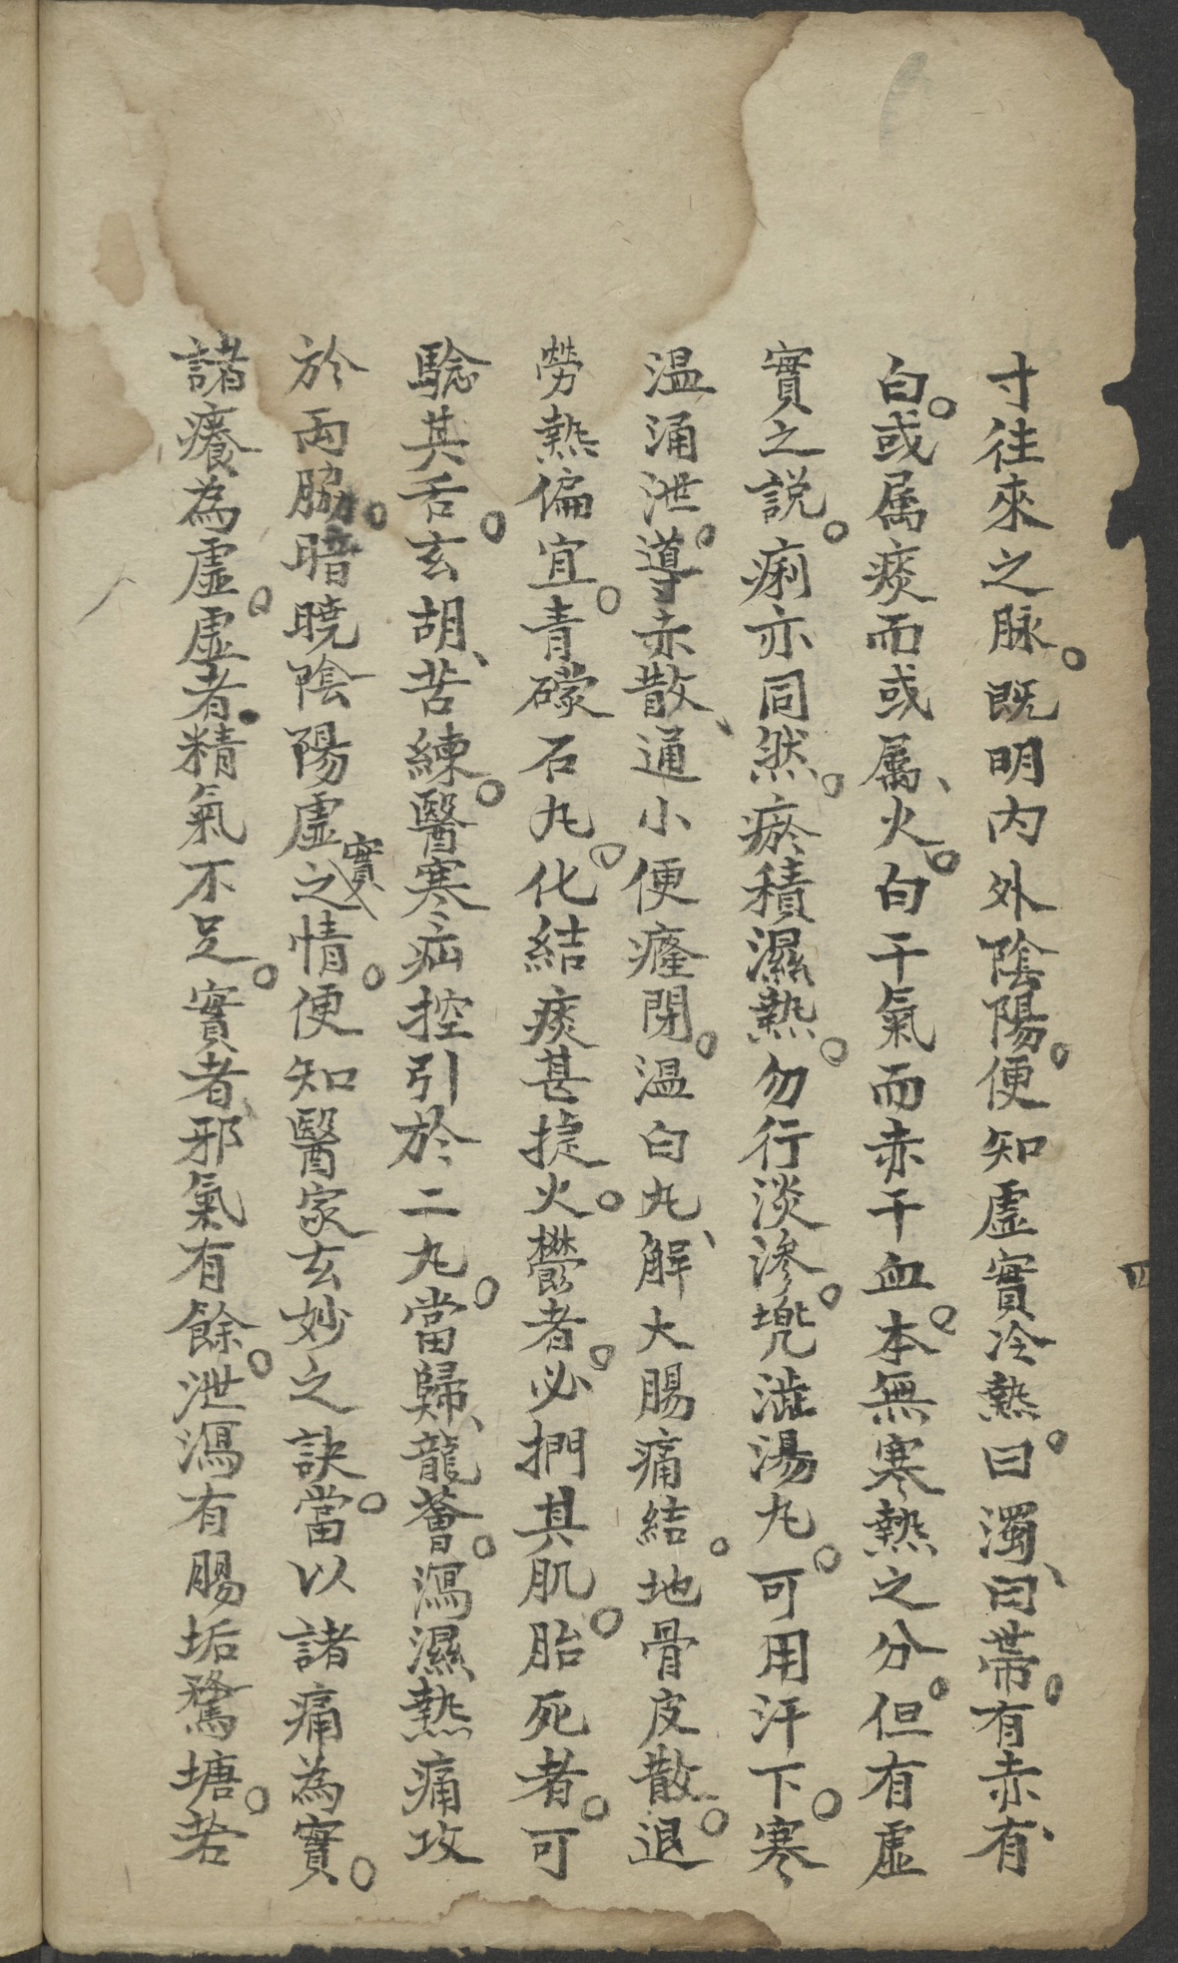 寸往來之脉。既明内外陰陽。便知虛實冷熱。曰濁、曰帶。有赤、有
白。或属痰而或属、火。白干氣而赤干血。本無寒熱之分。但有虛
實之説。痢亦同然。瘀積濕熱。勿行淡滲。兠澁湯丸。可用汗下。寒
温涌泄。導赤散、通小便癃閉。温白丸、解大腸痛結。地骨皮散。退
勞熱偏宜。青礞石丸。化結痰甚㨗。火鬱者。必捫其肌。胎死者。可
騐其舌。玄胡、苦練。醫寒疝控引於二丸。當歸、龍薈。瀉濕、熱痛攻
於両脇。暗曉陰陽虛實之情。便知醫家玄妙之訣。當以諸痛為實。
諸癢為虛。虛者精氣不足。實者、邪氣有餘。泄瀉有腸垢鶩塘。若
四